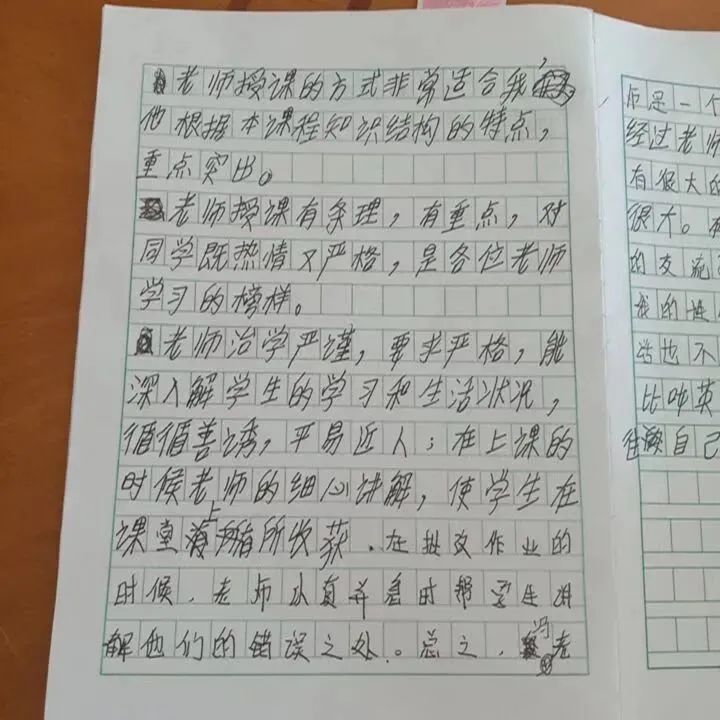 老师授课的方式非常适合我,
他根据本课程知识结构的特点,
重点突出。
老师授课有条理,有重点,对
同学既热情又严格,是各位老师
学习的榜样。
老师治学严谨,要求严格,能
深入解学生的学习和生活状况,
循循善诱,平易近人;在上课的
时候老师的细心讲解,使学生在
课堂上有所收获.在批改作业的
时候.老师认真并着时帮学生讲
解他们的错误之处。总之.冯老
师是一个
经过老师
有很大的
很大。
的交流
我的
也不
比如英
自己